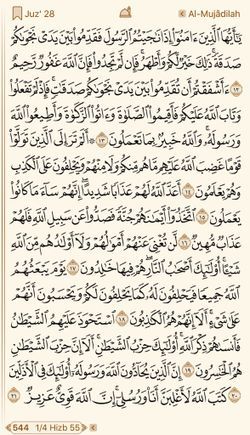 Juz' 28
Al-Mujādilah
يَٰٓأَيُّهَا ٱلَّذِينَ ءَامَنُوٓا۟ إِذَا نَٰجَيْتُمُ ٱلرَّسُولَ فَقَدِّمُوا۟ بَيْنَ يَدَىْ نَجْوَىٰكُمْ
صَدَقَةً ۚ ذَٰلِكَ خَيْرٌ لَّكُمْ وَأَطْهَرُ ۚ فَإِن لَّمْ تَجِدُوا۟ فَإِنَّ ٱللَّهَ غَفُورٌ رَّحِيمٌ
١٢ ءَأَشْفَقْتُمْ أَن تُقَدِّمُوا۟ بَيْنَ يَدَىْ نَجْوَىٰكُمْ صَدَقَٰتٍ ۚ فَإِذْ لَمْ تَفْعَلُوا۟
وَتَابَ ٱللَّهُ عَلَيْكُمْ فَأَقِيمُوا۟ ٱلصَّلَوٰةَ وَءَاتُوا۟ ٱلزَّكَوٰةَ وَأَطِيعُوا۟ ٱللَّهَ
وَرَسُولَهُۥ ۚ وَٱللَّهُ خَبِيرٌۢ بِمَا تَعْمَلُونَ ١٣ ۞ أَلَمْ تَرَ إِلَى ٱلَّذِينَ تَوَلَّوْا۟
قَوْمًا غَضِبَ ٱللَّهُ عَلَيْهِم مَّا هُم مِّنكُمْ وَلَا مِنْهُمْ وَيَحْلِفُونَ عَلَى ٱلْكَذِبِ
وَهُمْ يَعْلَمُونَ ١٤ أَعَدَّ ٱللَّهُ لَهُمْ عَذَابًا شَدِيدًا ۖ إِنَّهُمْ سَآءَ مَا كَانُوا۟
يَعْمَلُونَ ١٥ ٱتَّخَذُوٓا۟ أَيْمَٰنَهُمْ جُنَّةً فَصَدُّوا۟ عَن سَبِيلِ ٱللَّهِ فَلَهُمْ
عَذَابٌ مُّهِينٌ ١٦ لَّن تُغْنِىَ عَنْهُمْ أَمْوَٰلُهُمْ وَلَآ أَوْلَٰدُهُم مِّنَ ٱللَّهِ
شَيْـًٔا ۚ أُو۟لَٰٓئِكَ أَصْحَٰبُ ٱلنَّارِ ۖ هُمْ فِيهَا خَٰلِدُونَ ١٧ يَوْمَ يَبْعَثُهُمُ
ٱللَّهُ جَمِيعًا فَيَحْلِفُونَ لَهُۥ كَمَا يَحْلِفُونَ لَكُمْ ۖ وَيَحْسَبُونَ أَنَّهُمْ
عَلَىٰ شَىْءٍ ۚ أَلَآ إِنَّهُمْ هُمُ ٱلْكَٰذِبُونَ ١٨ ٱسْتَحْوَذَ عَلَيْهِمُ ٱلشَّيْطَٰنُ
فَأَنسَىٰهُمْ ذِكْرَ ٱللَّهِ ۚ أُو۟لَٰٓئِكَ حِزْبُ ٱلشَّيْطَٰنِ ۚ أَلَآ إِنَّ حِزْبَ ٱلشَّيْطَٰنِ
هُمُ ٱلْخَٰسِرُونَ ١٩ إِنَّ ٱلَّذِينَ يُحَآدُّونَ ٱللَّهَ وَرَسُولَهُۥٓ أُو۟لَٰٓئِكَ فِى ٱلْأَذَلِّينَ
٢٠ كَتَبَ ٱللَّهُ لَأَغْلِبَنَّ أَنَا۠ وَرُسُلِىٓ ۚ إِنَّ ٱللَّهَ قَوِىٌّ عَزِيزٌ ٢١
544 1/4 Hizb 55